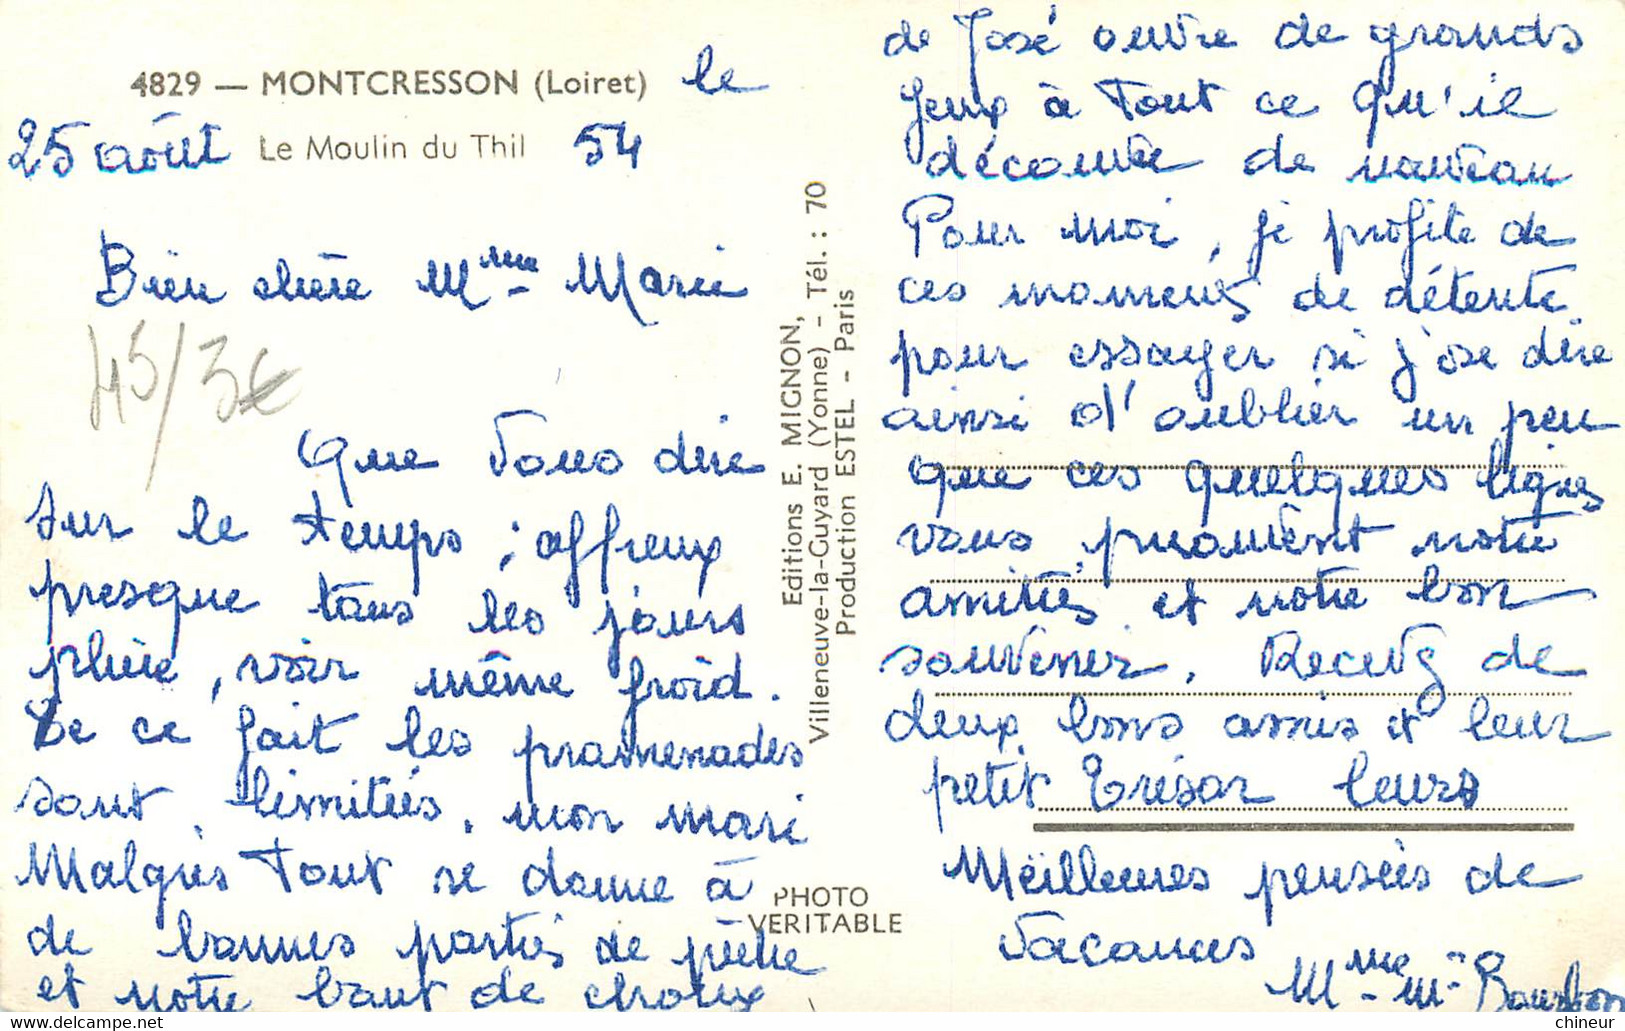 4829 — MONTCRESSON (Loiret) le
25 août Le Moulin du Thil 54
Bien chère Mme Marie
45/3€
Que vous dire
sur le temps ; affreux
presque tous les jours
pluie, voir même froid.
De ce fait les promenades
sont limitées, mon mari
Malgrès tout se donne à
de bonnes parties de pêche
et notre bout de choux
Editions E. MIGNON,
Villeneuve-la-Guyard (Yonne) - Tél. : 70
Production ESTEL - Paris
PHOTO
VERITABLE
de José ouvre de grands
yeux à tout ce qu'il
découvre de nouveau
Pour moi, je profite de
ces moments de détente
pour essayer si j'ose dire
ainsi d'oublier un peu
Que ces quelques lignes
vous prouvent notre
amitiés et notre bon
souvenir. Recevez de
deux bons amis et leur
petit Trésor leurs
Meilleures pensées de
vacances
Mme Mr
chineur